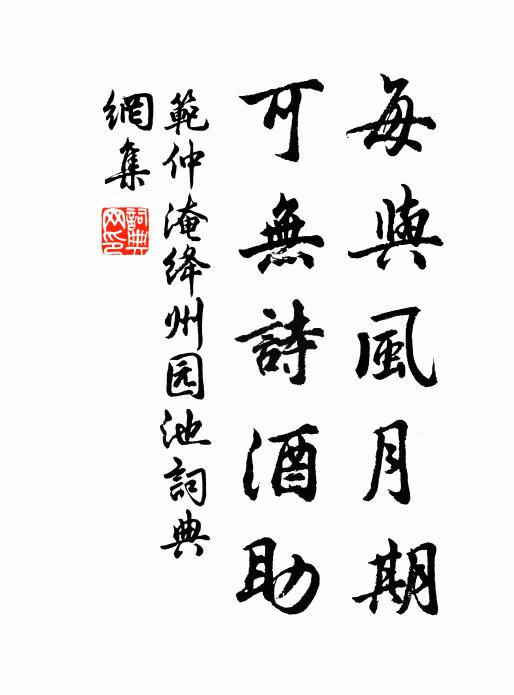 每與風月期
可無詩酒助
範仲淹绛州园池詞典
網集
詞典
网印